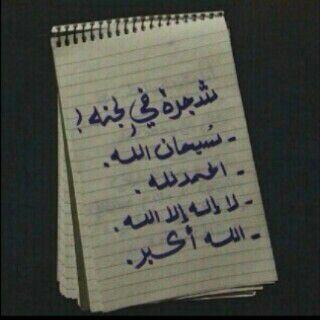 شجرة في لجنه !
- سبحان الله .
- الحمد لله .
- لا إله إلا الله .
- الله أكبر .